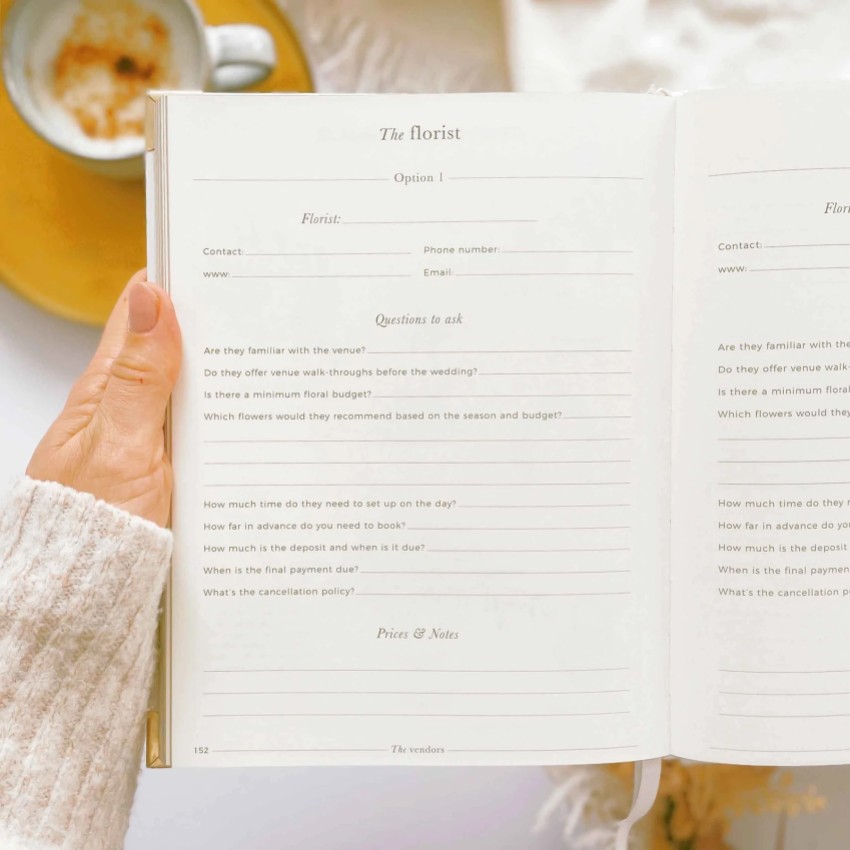 The florist
Option 1
Florist:
Contact: Phone number:
www: Email:
Questions to ask
Are they familiar with the venue?
Do they offer venue walk-throughs before the wedding?
Is there a minimum floral budget?
Which flowers would they recommend based on the season and budget?
How much time do they need to set up on the day?
How far in advance do you need to book?
How much is the deposit and when is it due?
When is the final payment due?
What's the cancellation policy?
Prices & Notes
152 The vendors
Contact:
www:
Are they familiar with the
Do they offer venue walk-
Is there a minimum floral
Which flowers would they
How much time do they
How far in advance do
How much is the deposit
When is the final
What's the cancellation